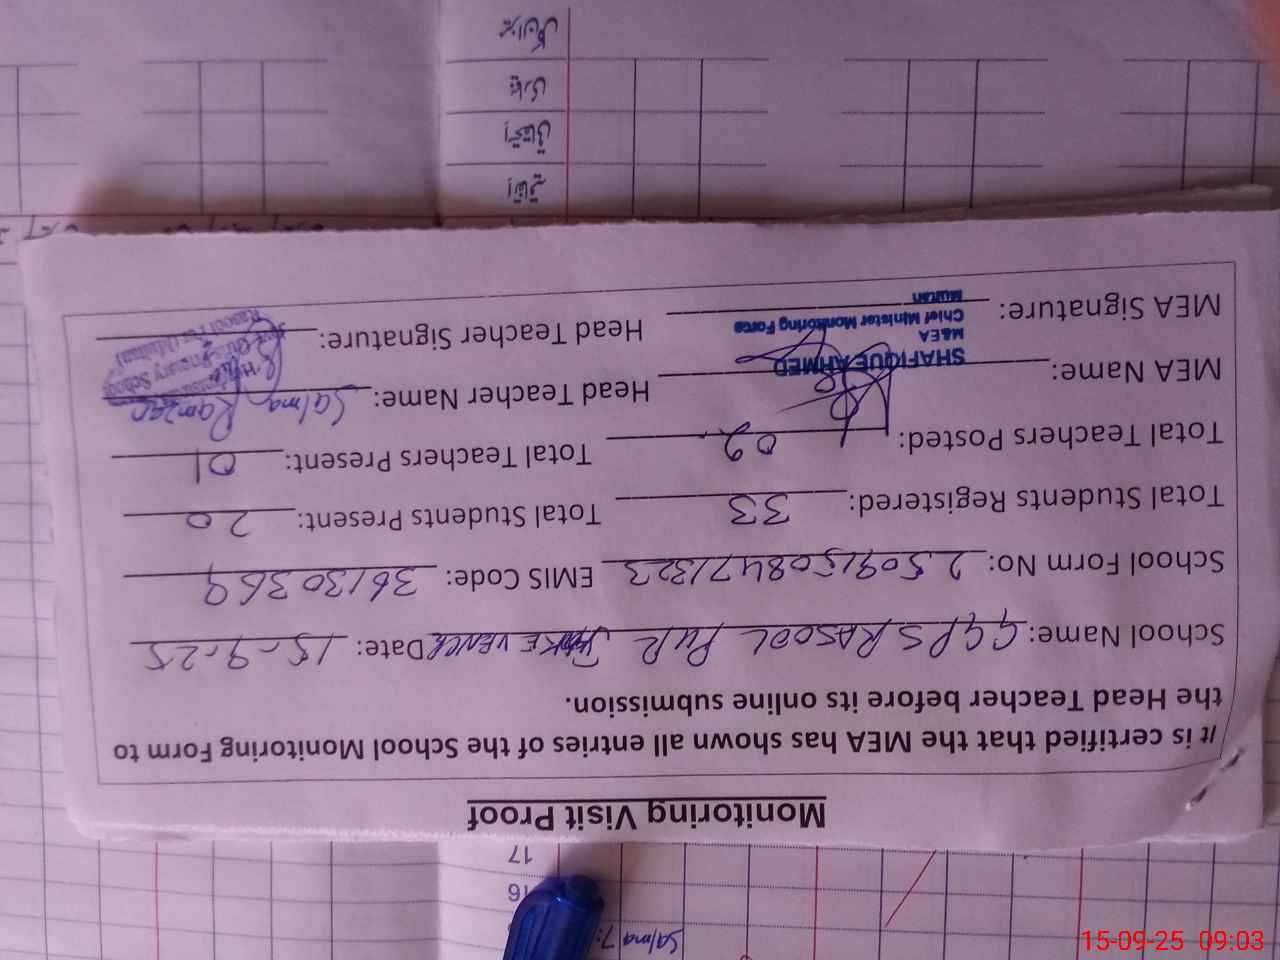 Monitoring Visit Proof
It is certified that the MEA has shown all entries of the School Monitoring Form to
the Head Teacher before its online submission.
School Name: GGPS RASOOL PUR Date: 15-9-25
School Form No: 25091508471323 EMIS Code: 36130369
Total Students Registered: 33 Total Students Present: 20
Total Teachers Posted: 02 Total Teachers Present: 01
MEA Name: Head Teacher Name: Salma Ramzan
SHAFIQUE AHMED
M&EA
Chief Minister Monitoring Force
Multan
MEA Signature: Head Teacher Signature:
Primary School
Rasool Pur (Multan)
16
17
Salma
15-09-25 09:03